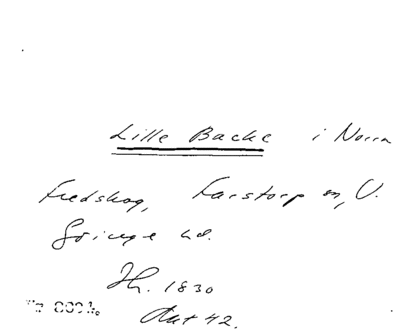 Lille Backe i Norra
Fredskog, Farstorp sn, V.
Göinge hd.
Jh. 1830
Akt 42.